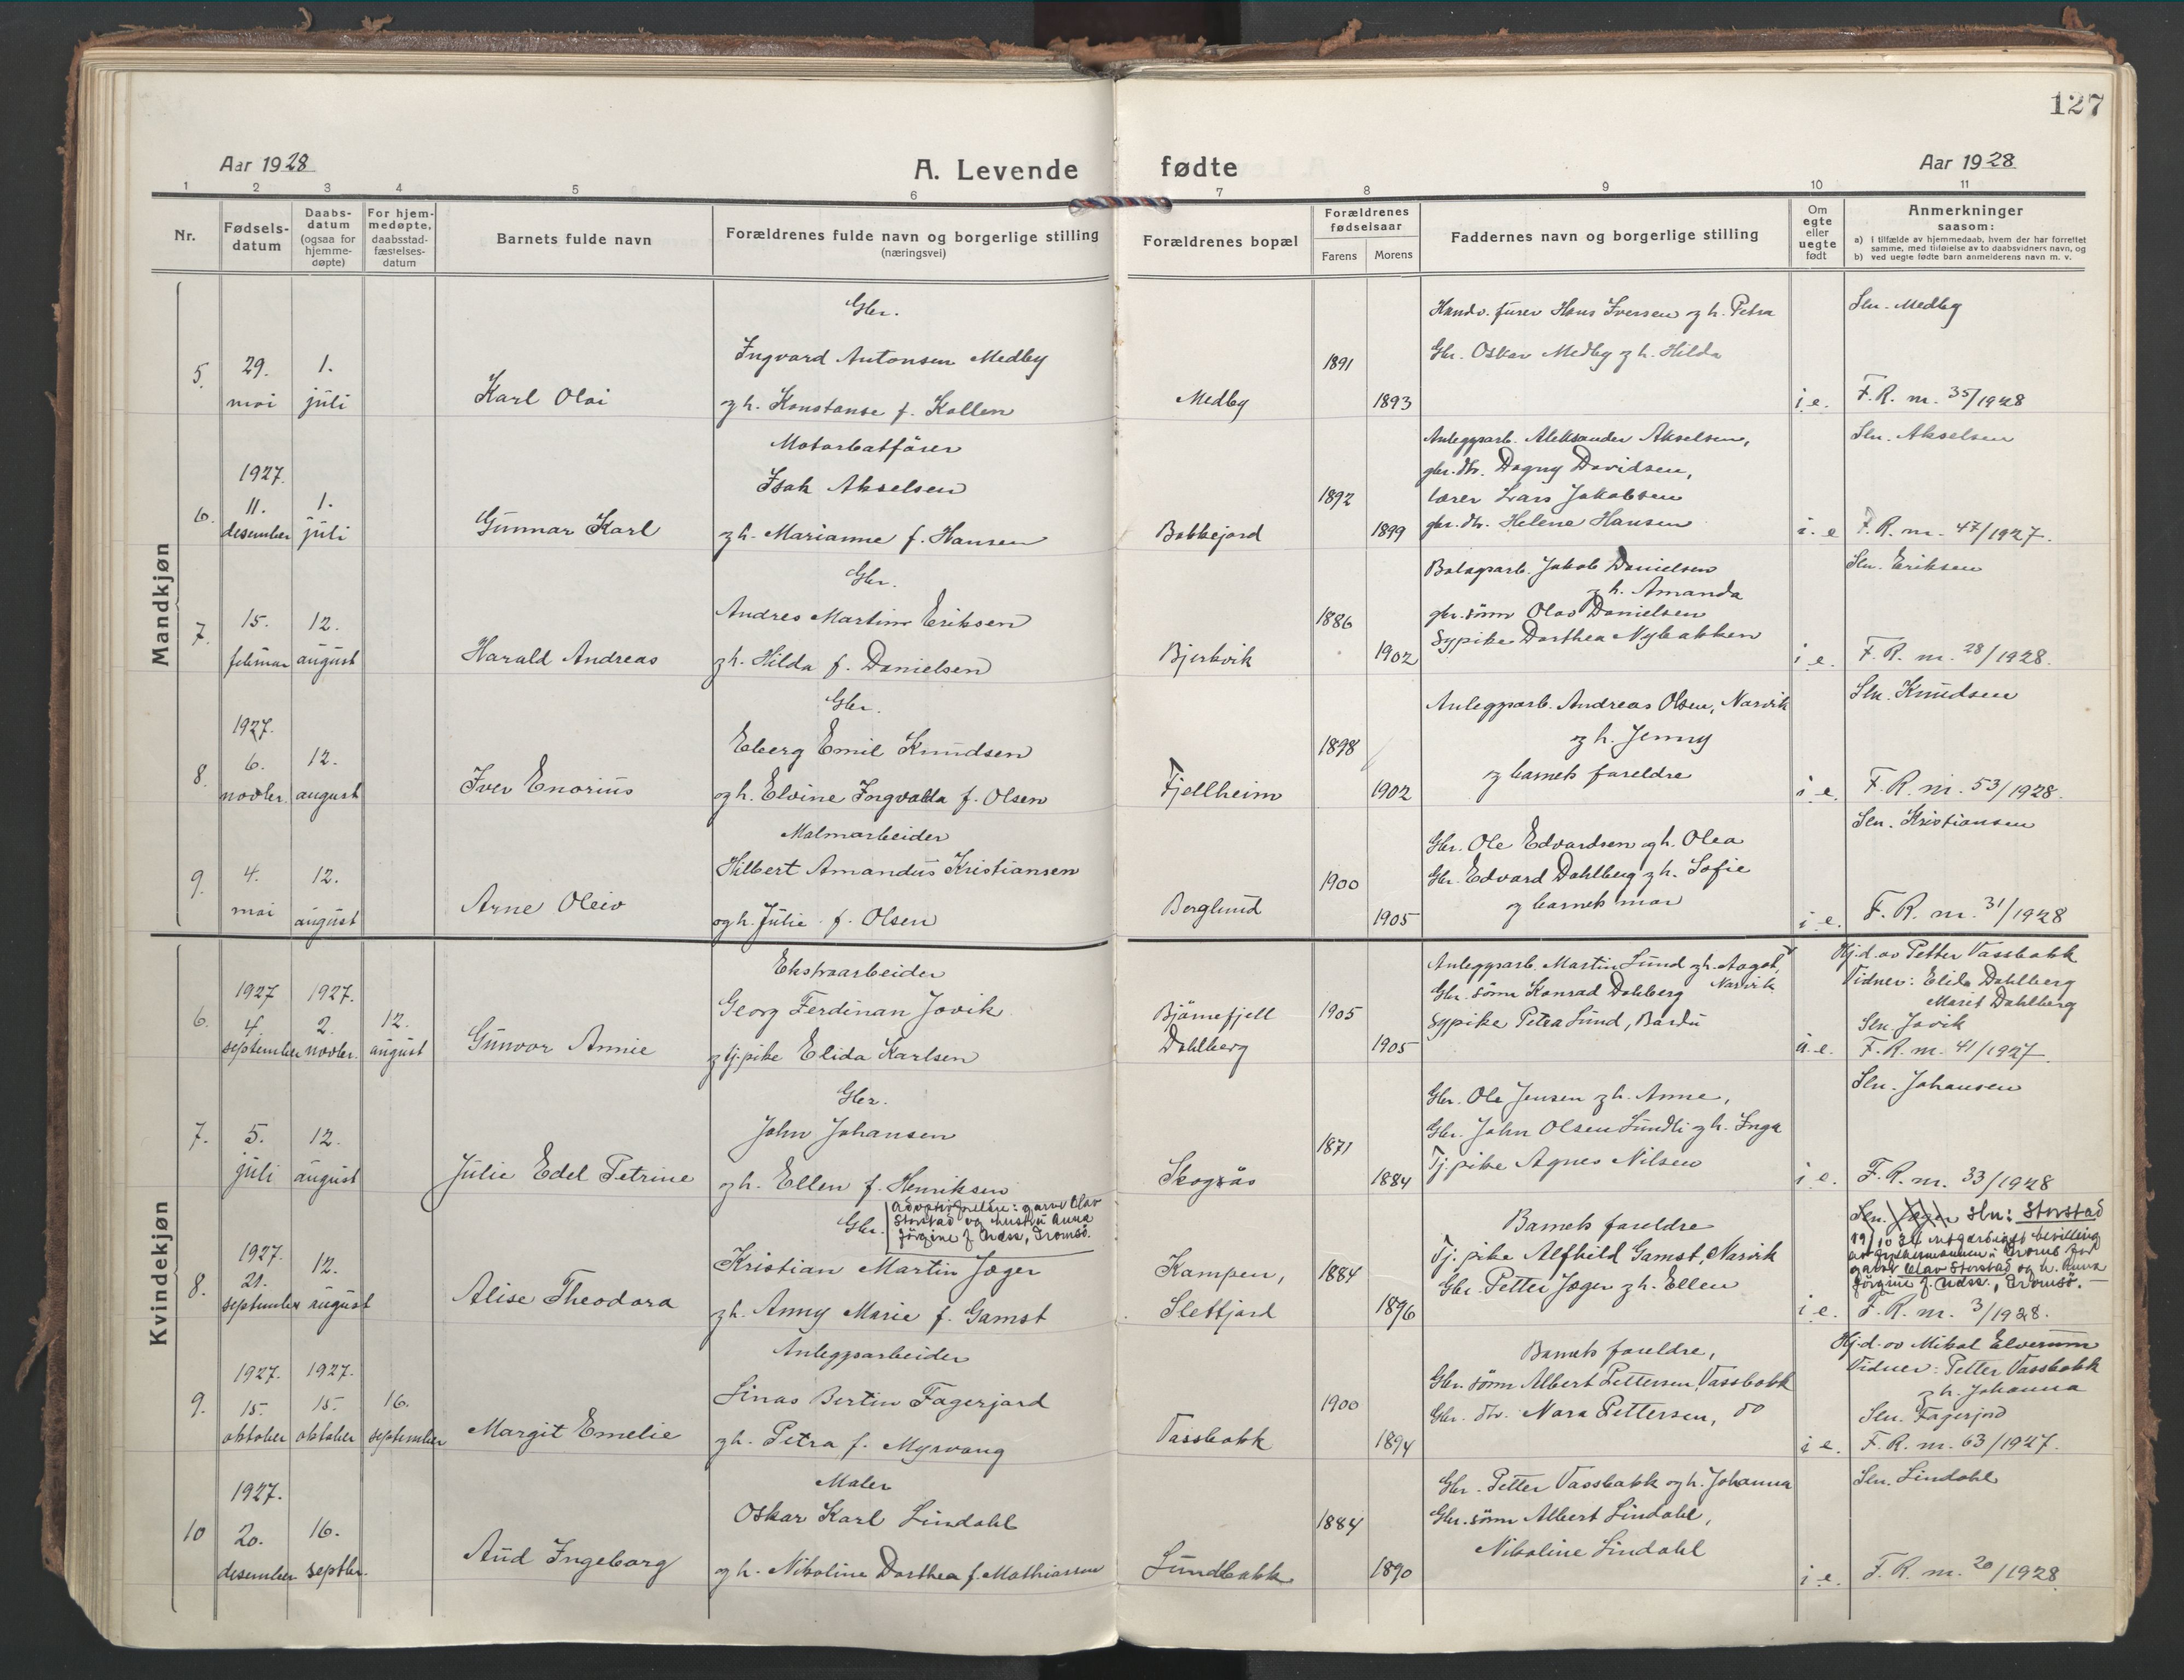 127
Aar 1928
A. Levende fødte
Aar 1928
1 2 3 4 5 6 7 8 9 10 11
Nr.
Fødsels-
datum
Daabs-
datum
(ogsaa for
hjemme-
døpte)
For hjem-
medøpte,
daabsstad-
fæstelses-
datum
Barnets fulde navn
Forældrenes fulde navn og borgerlige stilling
(næringsvei)
Forældrenes bopæl
Forældrenes
fødselsaar
Farens Morens
Faddernes navn og borgerlige stilling
Om
egte
eller
uegte
født
Anmerkninger
saasom:
a) i tilfælde av hjemmedaab, hvem der har forrettet
samme, med tilføielse av to daabsvidners navn, og
b) ved uegte fødte barn anmelderens navn m. v.
Mandkjøn
5.
29.
mai
1.
juli
Karl Olai
Gbr.
Ingvard Antonsen Medby
og h. Konstanse f. Kollen
Medby
1891
1893
Handv. furer Hans Iversen og h. Petra
Gbr. Oskar Medby og h. Hilda
i. e.
Sln. Medby
F. R. nr. 35/1928
6.
1927.
11.
desember
1.
juli
Gunnar Karl
Motorbatfører
Isak Akselsen
og h. Marianne f. Hansen
Bobbejord
1892
1899
Anleggsarb. Aleksander Akselsen,
gbr. dtr. Dagny Davidsen,
lærer Lars Jakobsen
gbr. dtr. Helene Hansen
i. e.
Sln. Akselsen
F. R. nr. 47/1927.
7.
15.
februar
12.
august
Harald Andreas
Gbr.
Andres Martin Eriksen
og h. Hilda f. Danielsen
Bjerkvik
1886
1902
Bolagsarb. Jakob Danielsen
og h. Amanda
gbr. sønn Olav Danielsen
Sypike Dorthea Nybakken
i. e.
Sln. Eriksen
F. R. nr. 28/1928.
8.
1927.
6.
novbr.
12.
august
Iver Enorius
Gbr.
Eberg Emil Knudsen
og h. Elvine Ingvalda f. Olsen
Fjellheim
1898
1902
Anleggsarb. Andreas Olsen, Narvik
og h. Jenny
og barnets foreldre
i. e.
Sln. Knudsen
F. R. nr. 53/1928.
9.
4.
mai
12.
august
Arne Oleiv
Malmarbeider
Hilbert Amandus Kristiansen
og h. Julie f. Olsen
Berglund
1900
1905
Gbr. Ole Edvardsen og h. Olea
Gbr. Edvard Dahlberg og h. Sofie
og barnets mor
i. e.
Sln. Kristiansen
F. R. nr. 31/1928
Kvindekjøn
6.
1927
4.
september
1927.
2.
novbr.
12.
august
Gunvor Annie
Ekstraarbeider
Georg Ferdinan Jovik
og tj. pike Elida Karlsen
Bjørnefjell
Dahlberg
1905
1905
Anleggsarb. Martin Lund og h. Aagot,
Narvik.
Gbr. sønn Konrad Dahlberg
Sypike Petra Lund, Bardu
u. e.
Hj.d. av Petter Vassbakk
Vidner: Elida Dahlberg
Marit Dahlberg
Sln. Jovik
F. R. nr. 41/1927.
7.
5.
juli
12.
august
Julie Edel Petrine
Gbr.
John Johansen
og h. Ellen f. Henriksen
Skogsås
1871
1884
Gbr. Ole Jensen og h. Anne,
Gbr. John Olsen Lundli og h. Inga
Tj. pike Agnes Nilsen
i. e.
Sln. Johansen
F. R. nr. 33/1928
8.
1927.
21.
september
12.
august
Alise Theodora
Gbr.
Adoptivforeldre: garver Olav
Storstad og hustru Anna
Jörgine f. Ness, Tromsö.
Kristian Martin Jæger
og h. Anny Marie f. Gamst
Kampen,
Sletfjord
1884
1896
Barnets foreldre
Tj. pike Alfhild Gamst, Narvik
Gbr. Petter Jæger og h. Ellen
i. e.
Sln. Jæger Sln: Storstad
bevilling
garver Olav Storstad og h. Anna
Jörgine f. Ness, Tromsö.
F. R. nr. 3/1928.
9.
1927.
15.
oktober
1927.
15.
oktober
16.
september
Margit Emelie
Anleggsarbeider
Linas Bertin Fagerjord
og h. Petra f. Myrvang
Vassbakk
1900
1894
Barnets foreldre,
Gbr. sønn Albert Pettersen, Vassbakk
Gbr. dtr. Nora Pettersen, do
i. e.
Hj.d. av Mikal Elverum
Vidner: Petter Vassbakk
og h. Johanna
Sln. Fagerjord
F. R. nr. 63/1927.
10
1927.
20.
desember
16.
septbr.
Aud Ingeborg
Maler
Oskar Karl Lindahl
og h. Nikoline Dorthea f. Mathiassen
Lundbakk
1884
1890
Gbr. Petter Vassbakk og h. Johanna
Gbr. sønn Albert Lindahl,
Nikoline Lindahl
i. e.
Sln. Lindahl
F. R. nr. 20/1928.